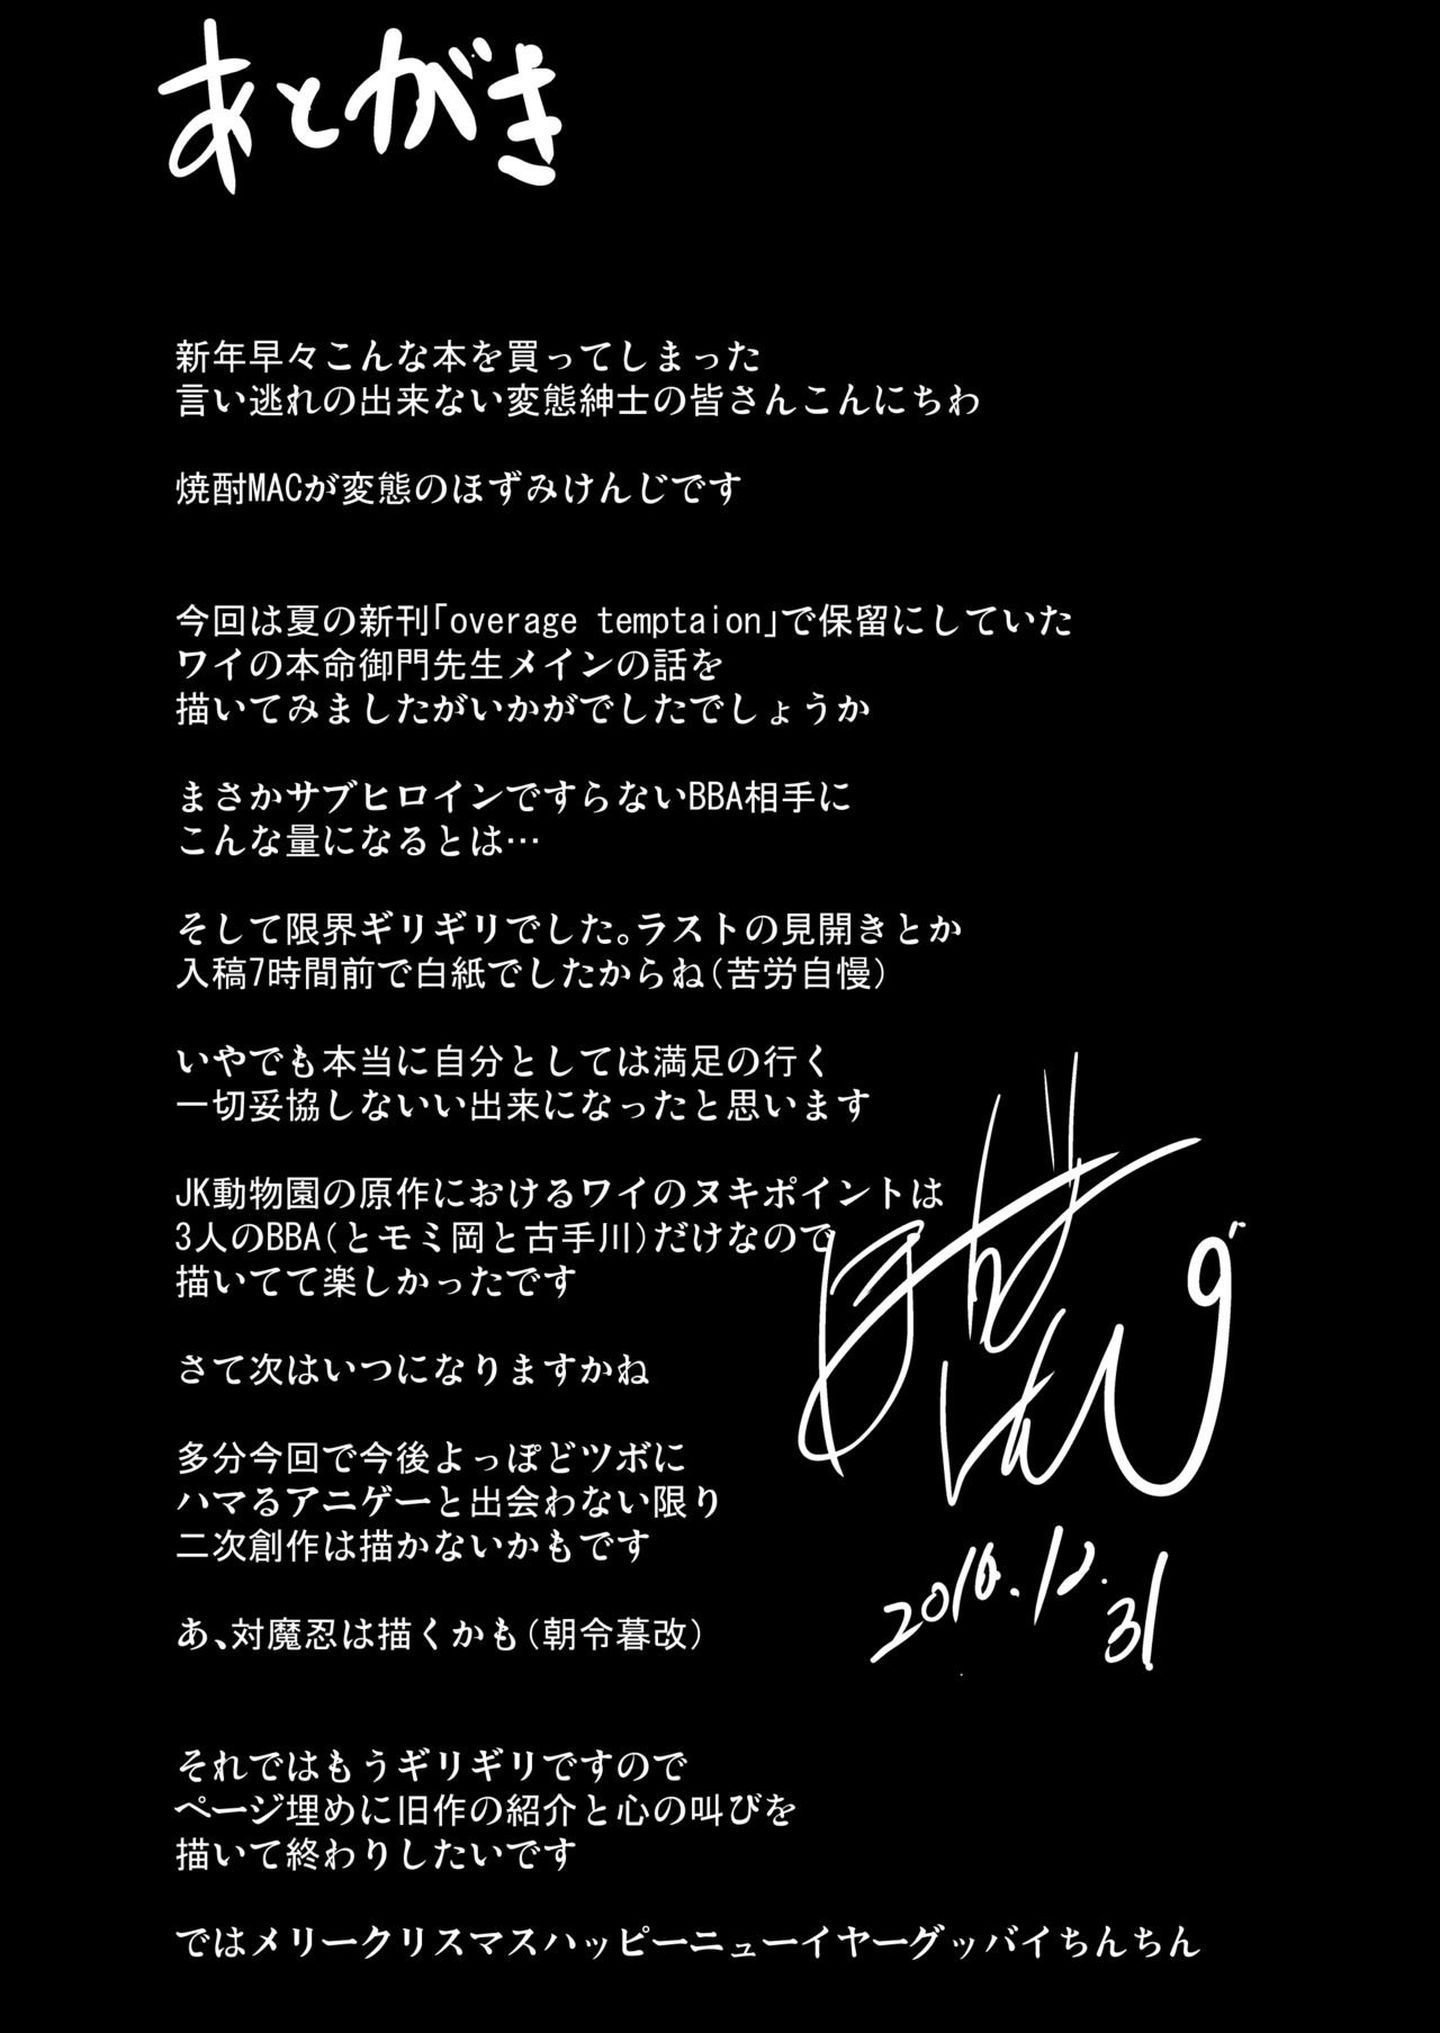 あとがき
新年早々こんな本を買ってしまった
言い逃れの出来ない変態紳士の皆さんこんにちわ
焼酎MACが変態のほずみけんじです
今回は夏の新刊｢overage temptaion｣で保留にしていた
ワイの本命御門先生メインの話を
描いてみましたがいかがでしたでしょうか
まさかサブヒロインですらないBBA相手に
こんな量になるとは…
そして限界ギリギリでした｡ラストの見開きとか
入稿7時間前で白紙でしたからね(苦労自慢)
いやでも本当に自分としては満足の行く
一切妥協しないいい出来になったと思います
JK動物園の原作におけるワイのヌキポイントは
3人のBBA(とモミ岡と古手川)だけなので
描いてて楽しかったです
さて次はいつになりますかね
多分今回で今後よっぽどツボに
ハマるアニゲーと出会わない限り
二次創作は描かないかもです
あ､対魔忍は描くかも(朝令暮改)
2016.12.31
それではもうギリギリですので
ページ埋めに旧作の紹介と心の叫びを
描いて終わりしたいです
ではメリークリスマスハッピーニューイヤーグッバイちんちん